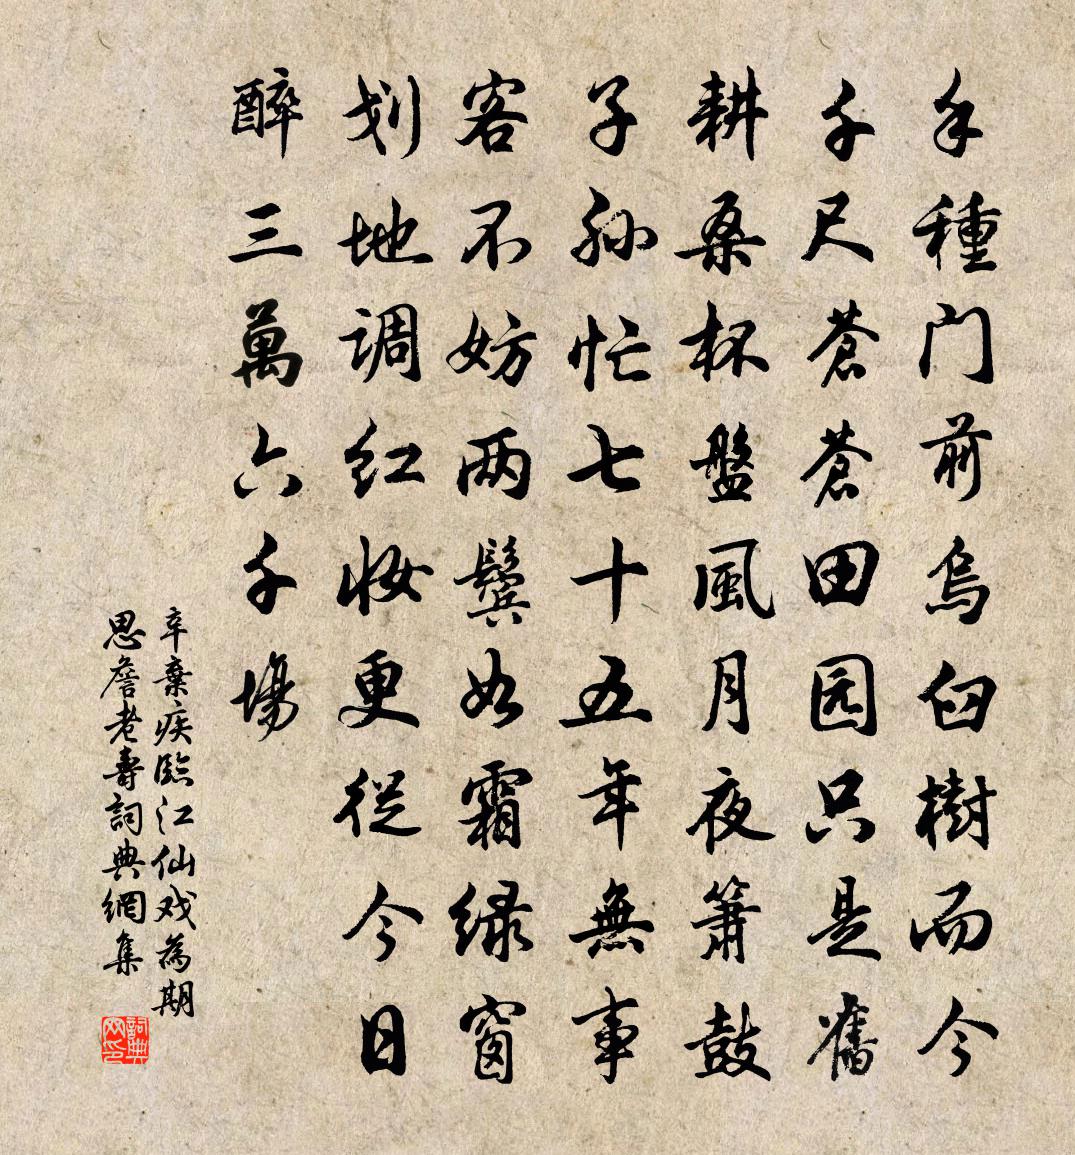 手種门前烏臼樹而今
千尺蒼蒼田园只是舊
耕桑杯盤風月夜簫鼓
子孙忙七十五年無事
客不妨两鬓如霜绿窗
划地调红妆更從今日
醉三萬六千場
辛棄疾臨江仙戏為期
思詹老壽詞典網集
詞典
网印